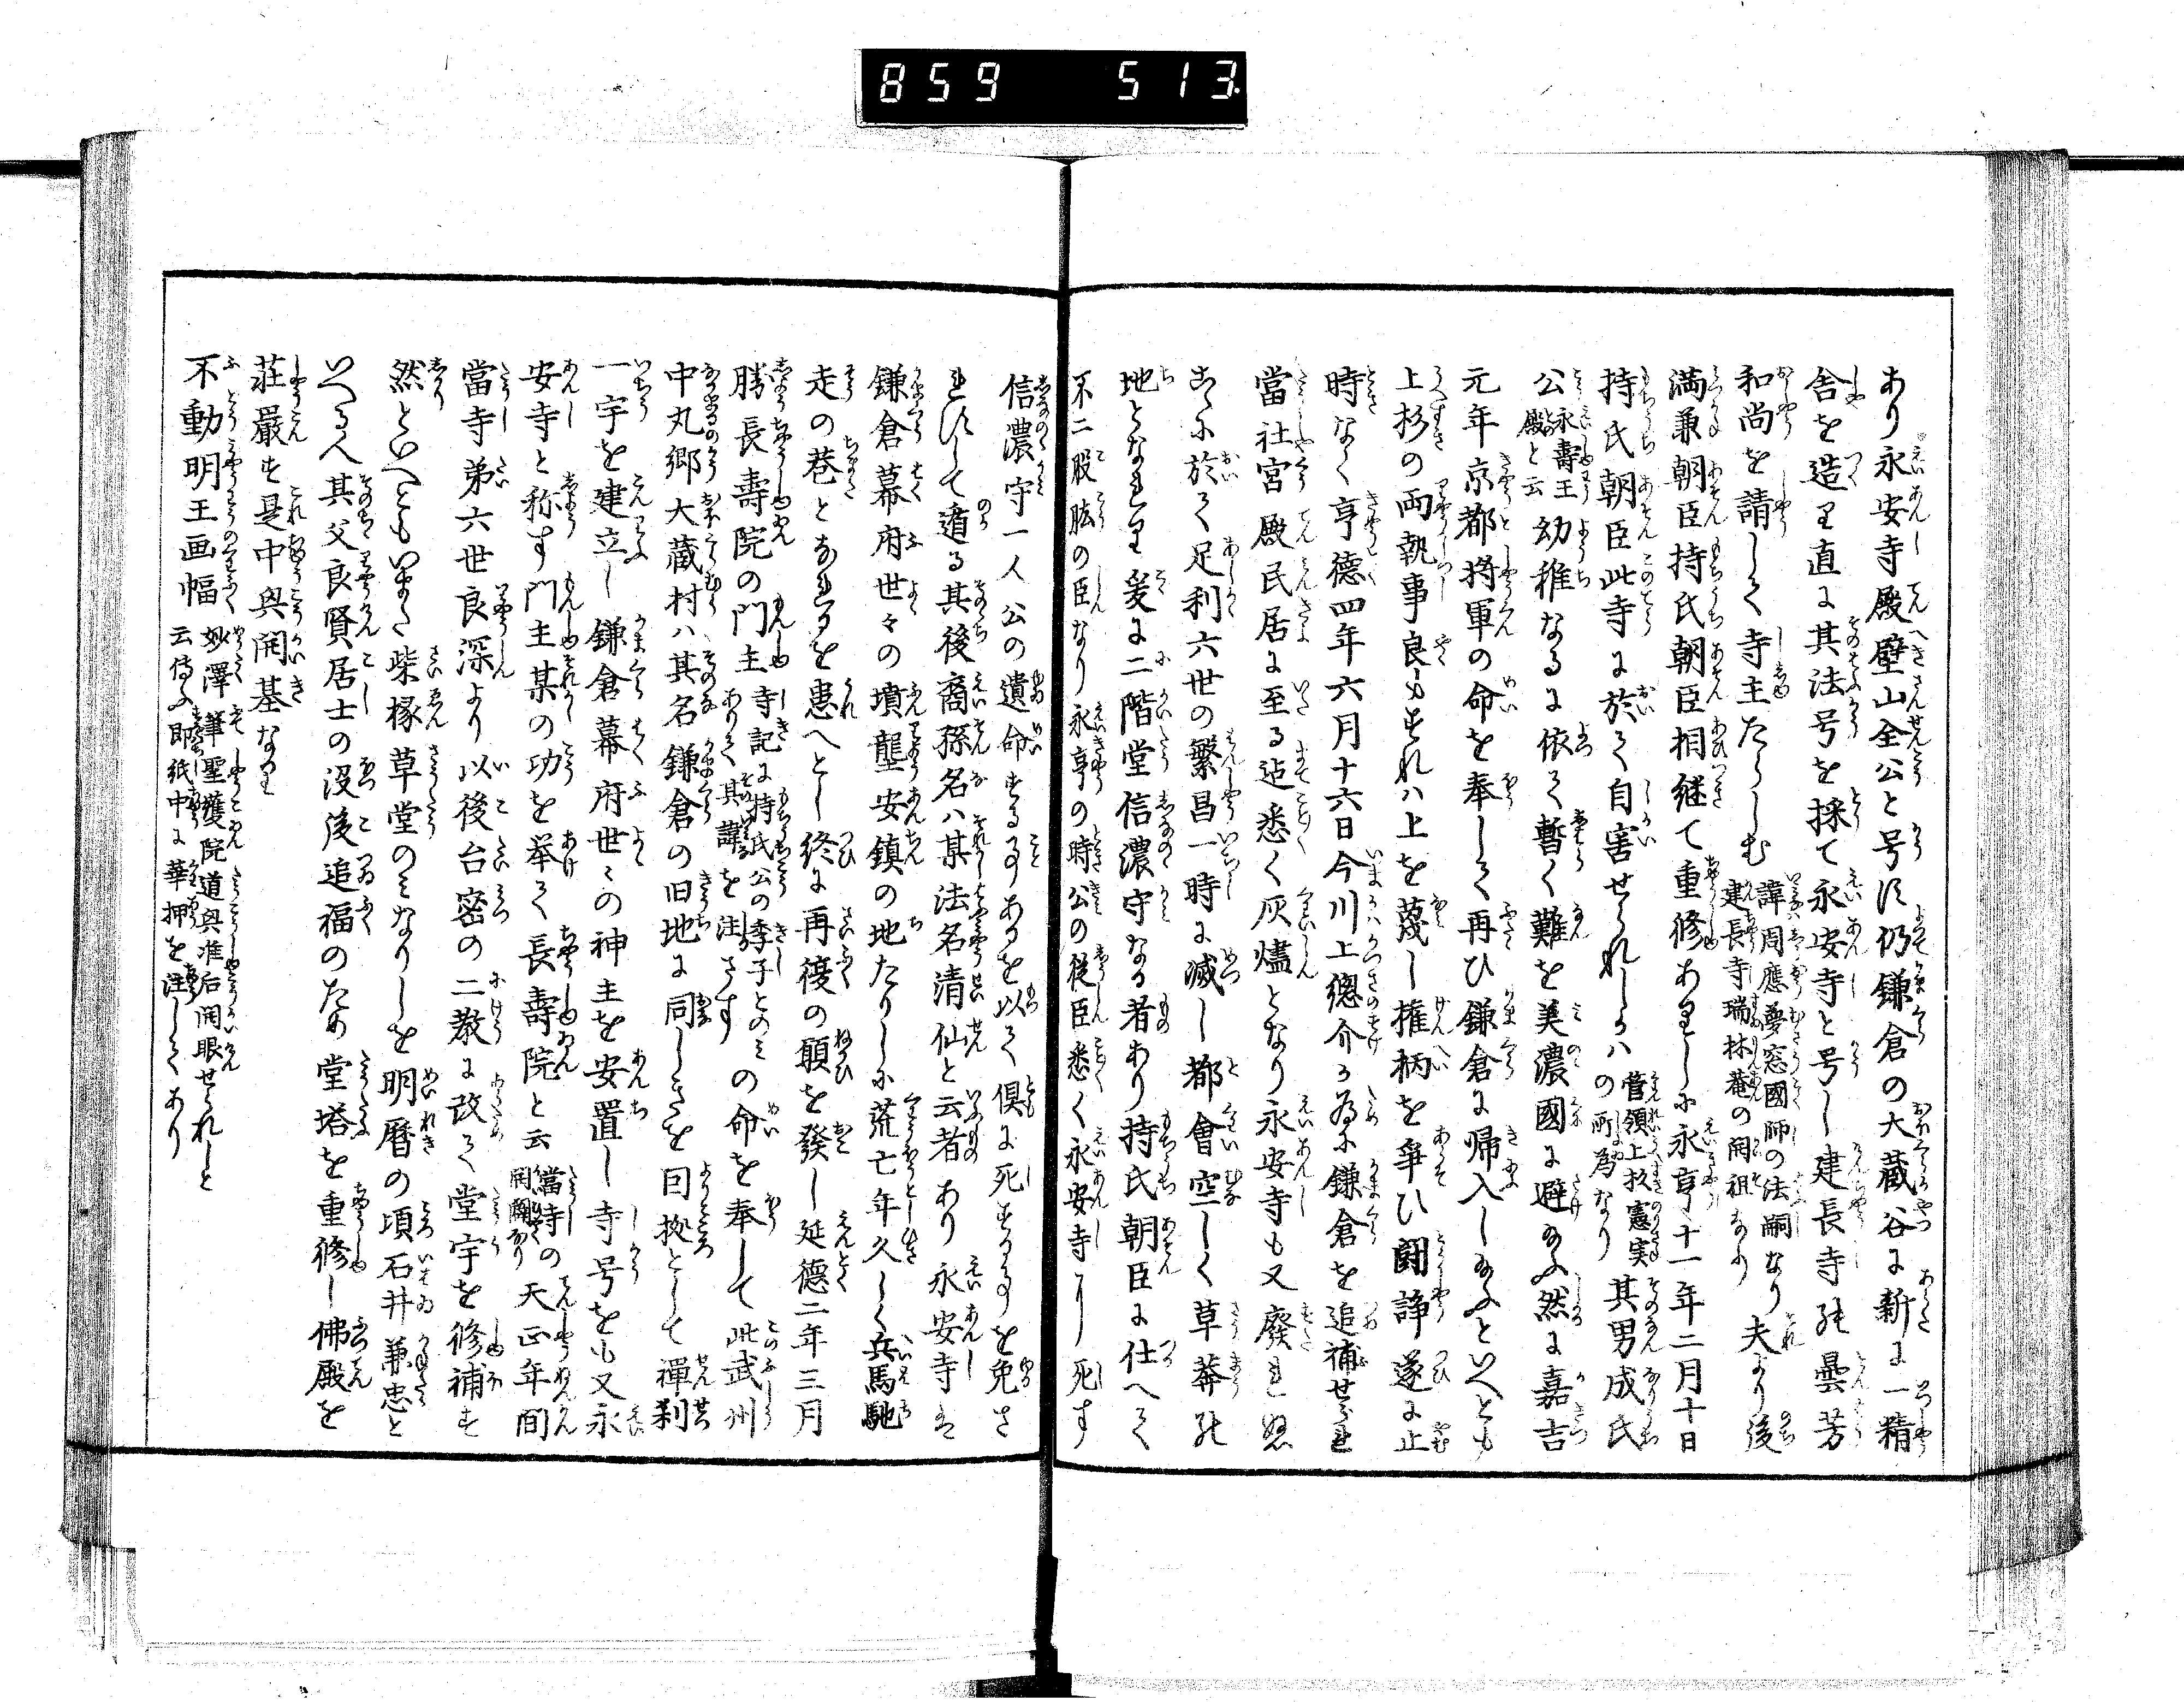 859 513
あり永安寺殿壁山全公と号す仍鎌倉の大蔵谷に新に一精
舎を造り直に其法号を採て永安寺と号し建長寺の曇芳
和尚を請して寺主たらしむ諱周應夢窓國師の法嗣なり建長寺瑞林菴の開祖なり夫より後
満兼朝臣持氏朝臣相継て重修ありしに永享十一年二月十日
持氏朝臣此寺に於て自害せられしかハ管領上杦憲実の所為なり其男成氏
公永壽王殿と云幼稚なるに依て暫く難を美濃國に避給ふ然に嘉吉
元年京都将軍の命を奉して再ひ鎌倉に帰入し給ふといへとも
上杉の両執事良もすれハ上を蔑し権柄を爭ひ鬪諍遂に止
時なく亨德四年六月十六日今川上總介か為に鎌倉を追補せられ
當社宮殿民居に至る迠悉く灰燼となり永安寺も又廢れぬ
こゝに於て足利六世の繁昌一時に滅し都會空しく草莽の
地となれり爰に二階堂信濃守なる者あり持氏朝臣に仕へて
不二股肱の臣なり永亨の時公の従臣悉く永安寺に死す
信濃守一人公の遺命する事あるを以て倶に死する事を免さ
れすして遁る其後裔孫名ハ某法名清仙と云者あり永安寺は
鎌倉幕府世々の墳壟安鎮の地たりしに荒亡年久しく兵馬馳
走の巷となれるを患へとし終に再復の願を發し延德二年三月
勝長壽院の門主寺記に持氏公の季子とのミありて其諱を注さすの命を奉して此武州
中丸郷大蔵村ハ其名鎌倉の旧地に同しきを囙拠として禅刹
一宇を建立し鎌倉幕府世々の神主を安置し寺号をも又永
安寺と称す門主某の功を挙て長壽院と云當寺の開闢なり天正年間
當寺第六世良深より以後台密の二教に改て堂宇を修補す
然といへともいまた柴椽草堂のミなりしを明暦の頃石井兼忠と
いへる人其父良賢居士の没後追福のため堂塔を重修し佛殿を
荘嚴す是中興開基なり
不動明王画幅妙澤筆聖護院道興准后開眼せられしと云傳ふ即紙中に華押を注してあり